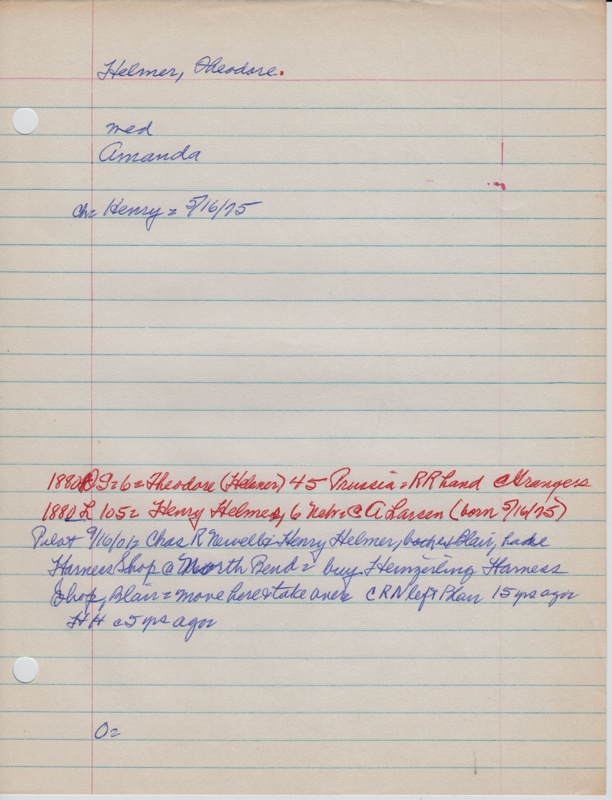 Helmer, Theodore.
med
Amanda
ch= Henry = 5/16/75
1880 D S=6= Theodore (Helmer) 45 Prussia = RR hand c Strangers
1880 L 105= Henry Helmer, 6 Neb= c A Larsen (born 5/16/75)
Pilot 9/16/01= Chas R Newell & Henry Helmer, both Blair, had
Harness Shop @ North Bend = buy Heinzerling Harness
Shop, Blair = move here & take over CRN left Blair 15 yrs ago
HH c5 yrs ago
O=